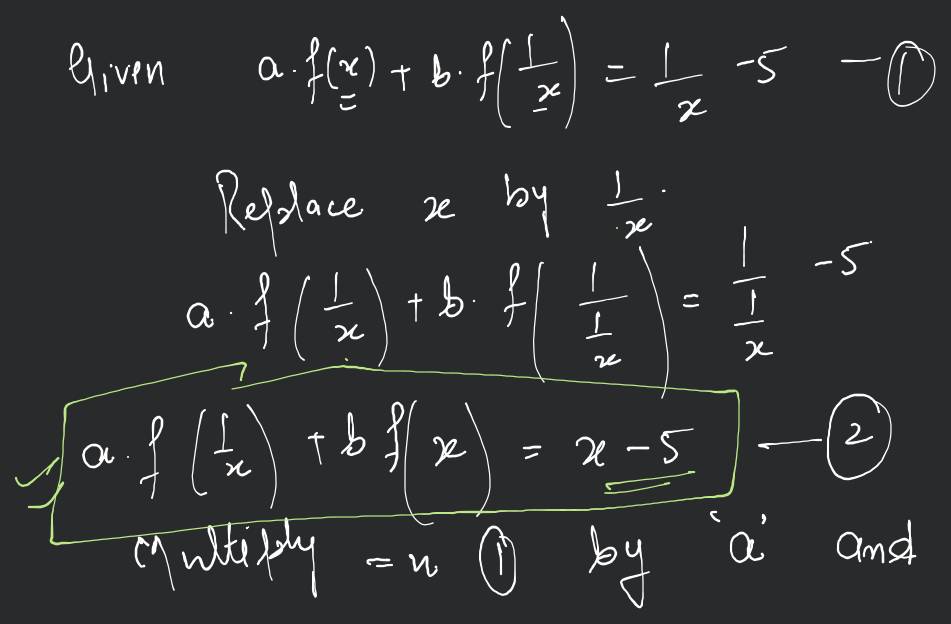 Given a.f(x) + b.f(1/x) = 1/x -5 — ①
Replace x by 1/x.
a.f(1/x) + b.f(1/(1/x)) = 1/(1/x) -5
a.f(1/x) + b f(x) = x - 5 — ②
Multiply =n ① by 'a' and